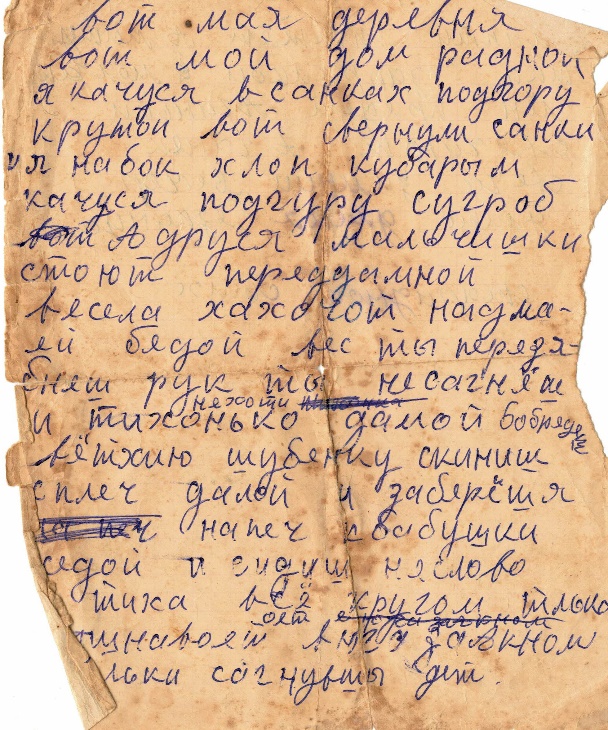 вот мая деревня
вот мой дом радной
я качуся всанках подгору
крутои вот свернули санки
ия набок хлоп кубарым
качуся подгуру сугроб
Адруся мальчишки
стоют переддамной
весела хахочот надма-
ей бядой вес ты передя-
бнеш рук ты несагнёш
нехотя
и тихонько дамой бобредеш
вётхию шубенку скиниш
сплеч далой и заберёшя
напеч кбабушки
седой и зидиш няслово
тиха всё кругом тлько
воет вюгу заАкном
сагнувшы дет.